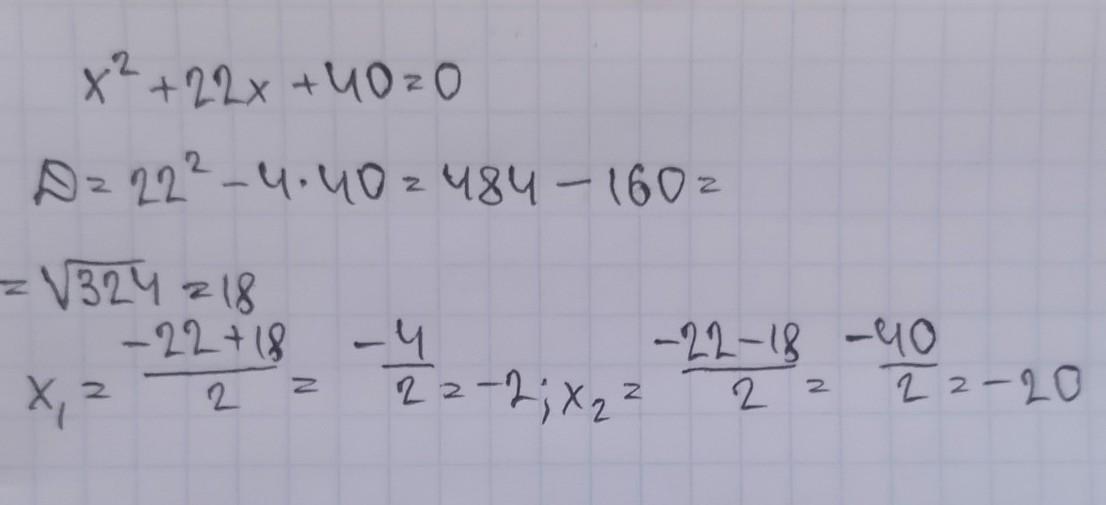 x² + 22x + 40 = 0
D = 22² - 4 · 40 = 484 - 160 =
= √324 = 18
x₁ = (-22 + 18)/2 = -4/2 = -2; x₂ = (-22 - 18)/2 = -40/2 = -20